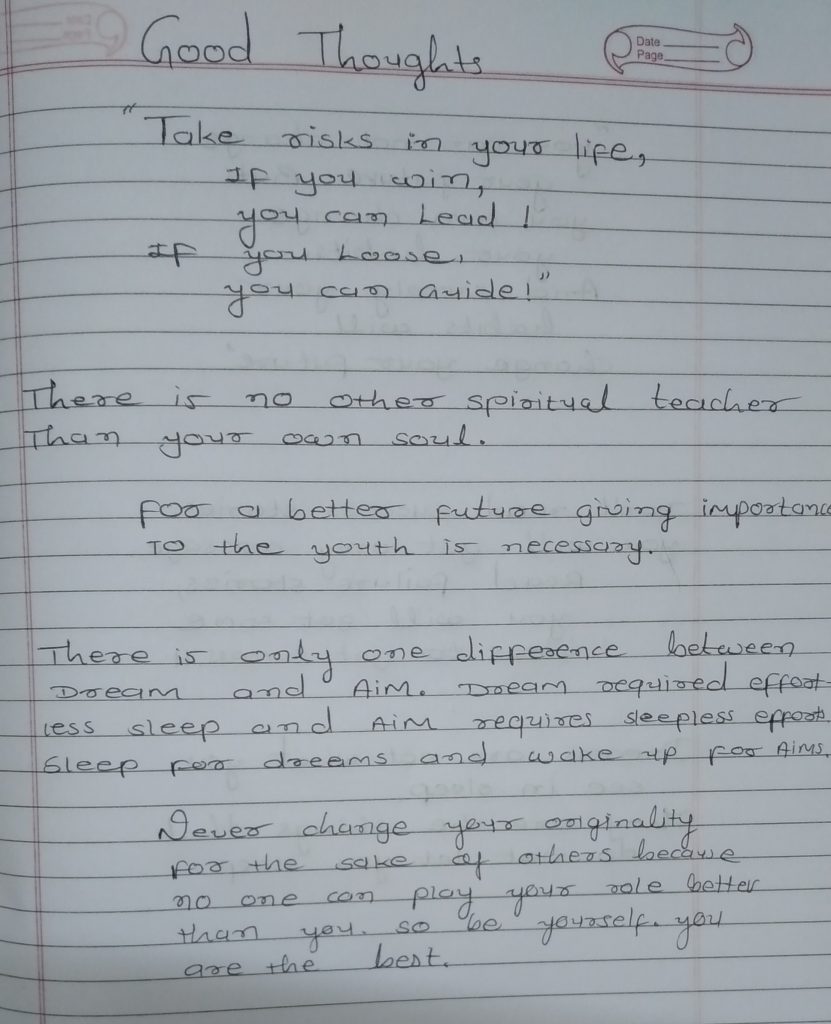 Good Thoughts
Date
Page
"Take risks in your life,
If you win,
you can Lead!
If you Loose,
you can Guide!"
There is no other spiritual teacher
Than your own soul.
For a better future giving importance
To the youth is necessary.
There is only one difference between
Dream and Aim. Dream required effort-
less sleep and Aim requires sleepless efforts.
Sleep for dreems and wake up for Aims.
Never change your originality
For the sake of others because
no one can play your role better
than you. so be yourself. you
are the best.